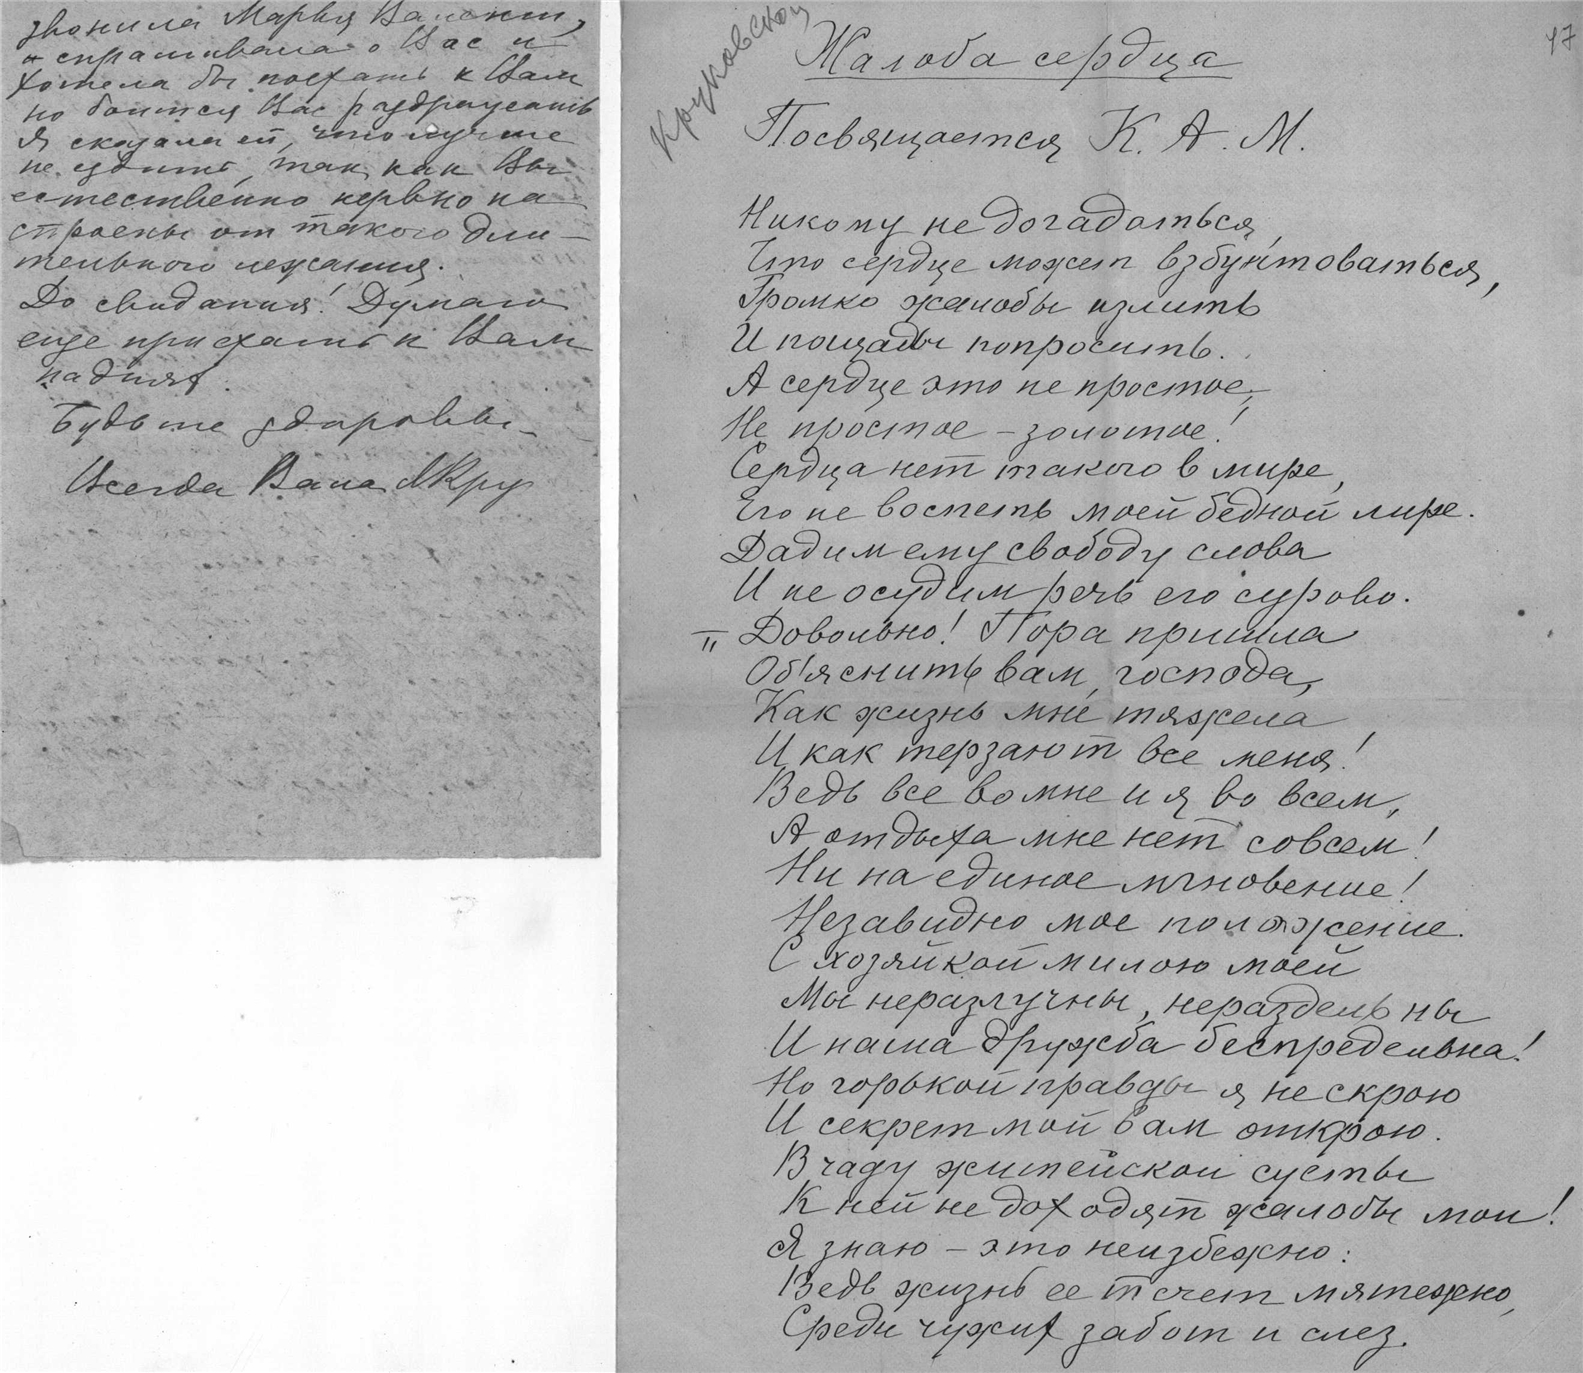 звонила Марья
и спрашивала о Вас и
хотела бы поехать к Вам
но боится Вас раздражать
Я сказала ей, что лучше
не ездить, так как Вы
естественно нервно на
строены от такого дли-
тельного лежания.
До свидания! Думаю
еще приехать к Вам
на днях.
Будьте здоровы-
Всегда Ваша МКру
Круковской
47
Жалоба сердца
Посвящается К. А. М.
Никому не догадаться,
Что сердце может взбунтоваться,
Громко жалобы излить
И пощады попросить.
А сердце это не простое,
Не простое – золотое!
Сердца нет такого в мире,
Его не воспеть моей бедной лире.
Дадим ему свободу слова
И не осудим речь его сурово.
II Довольно! Пора пришла
Об'яснить вам, господа,
Как жизнь мне тяжела
И как терзают все меня!
Ведь все во мне и я во всем,
А отдыха мне нет совсем!
Ни на единое мгновение!
Незавидно мое положение.
С хозяйкой милою моей
Мы неразлучны, нераздельны
И наша дружба беспредельна!
Но горькой правды я не скрою
И секрет мой вам открою.
В чаду житейской суеты
К ней не доходят жалобы мои!
Я знаю – это неизбежно:
Ведь жизнь ее течет мятежно,
Среди чужих забот и слез.